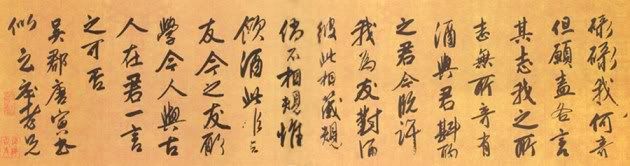 碌碌我何奇
但願盍各言
其志我之所
志無所奇有
酒與君斟
之君今既許
我為友對酒
彼此相箴規
倘不相規惟
飲酒此非古
友今之友願
學今人與古
人在君一言
之可否
吳郡唐寅書
似云莊老兄